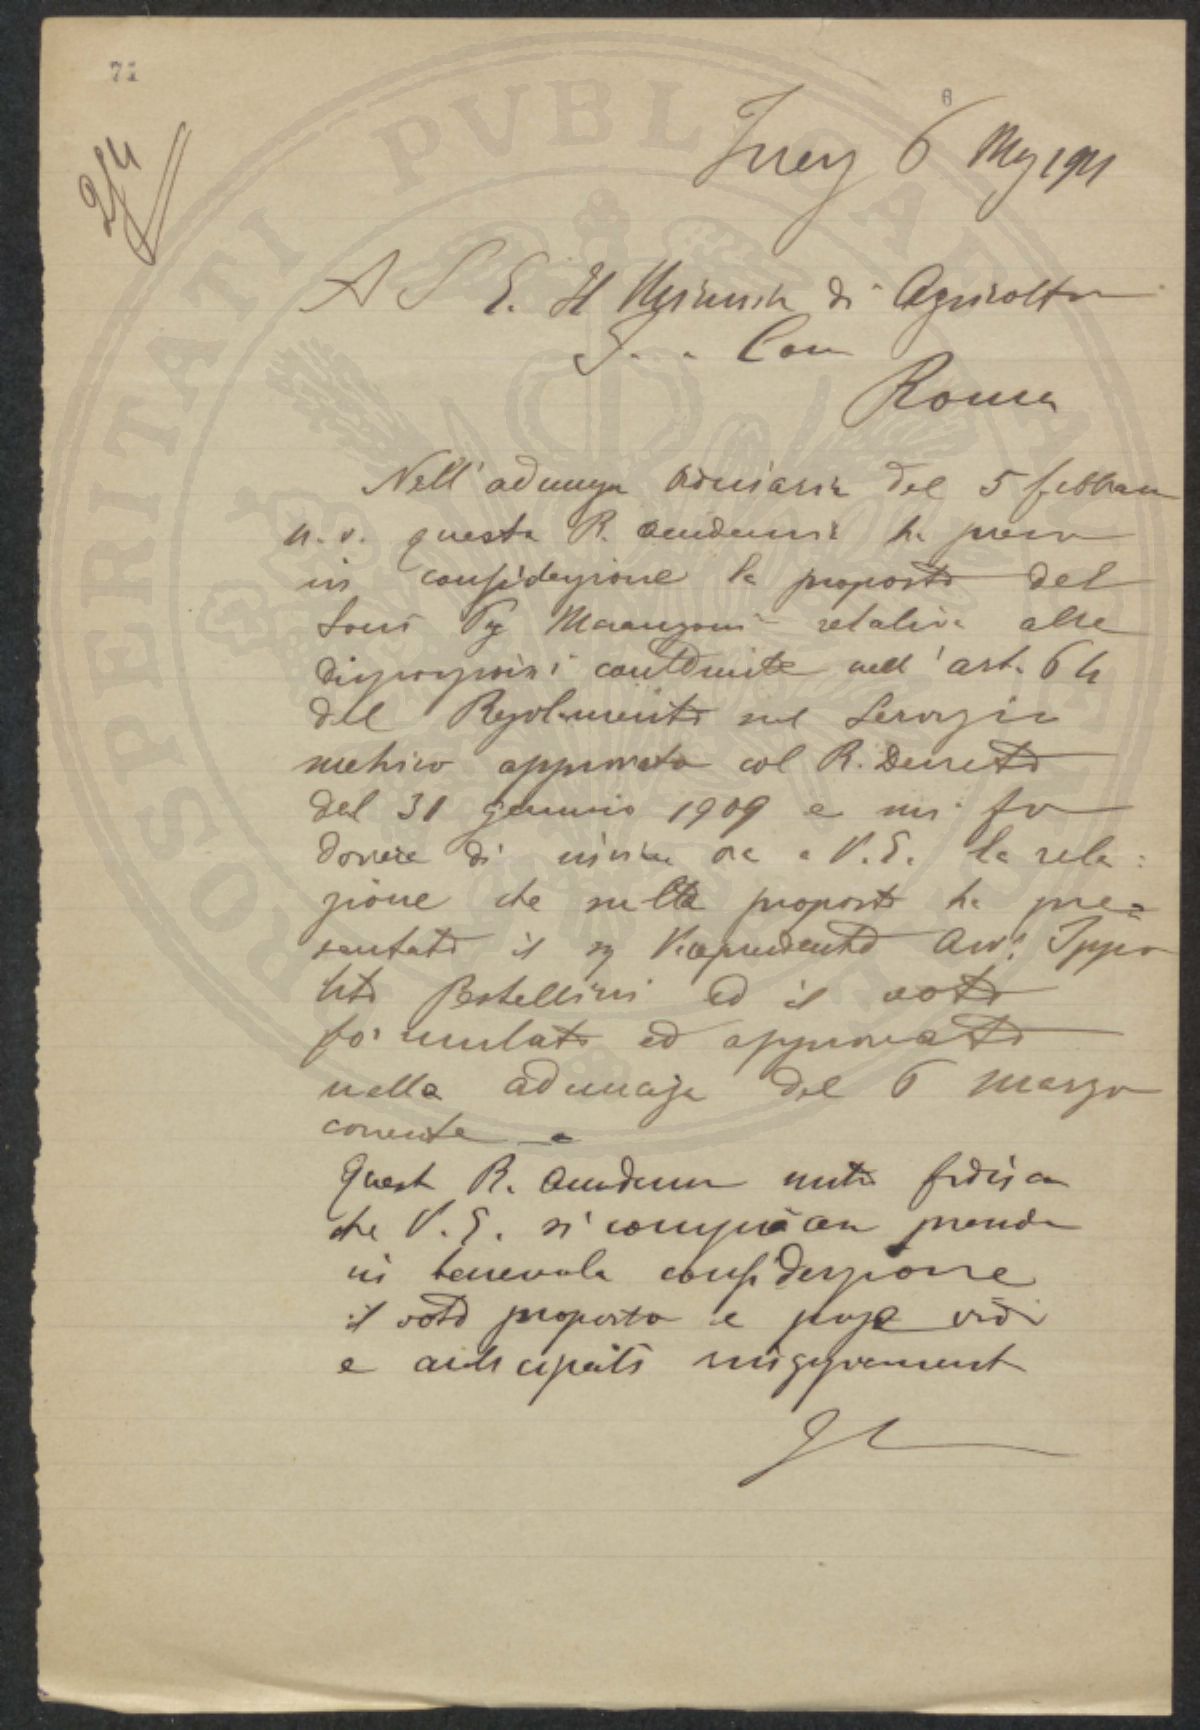 71
6
2/4
6 1911
A S. E. Il Ministro di Agricoltura
I. . Com
Roma
Nell' adunanza ordinaria del 5 febbraio
u. s. questa R. Accademia ha preso
in considerazione la proposta del
Socio Sig Marangoni relativa alle
disposizioni contenute nell' art. 64
del Regolamento sul Servizio
metrico approvato col R. Decreto
del 31 gennaio 1909 e mi fo
dovere di inviare ora a V. E. la rela:
zione che sulla proposta ha pre=
sentato il Sig Vicepresidente Avv. Ippo
lito Pestellini ed il voto
formulato ed approvato
nella adunanza del 6 marzo
corrente
Questa R. Accademia nutre fiducia
che V. E. si compiaccia prendere
in benevola considerazione
il voto proposto e porge vivi
e anticipati ringraziamenti
PROSPERITATI PVBLICAE